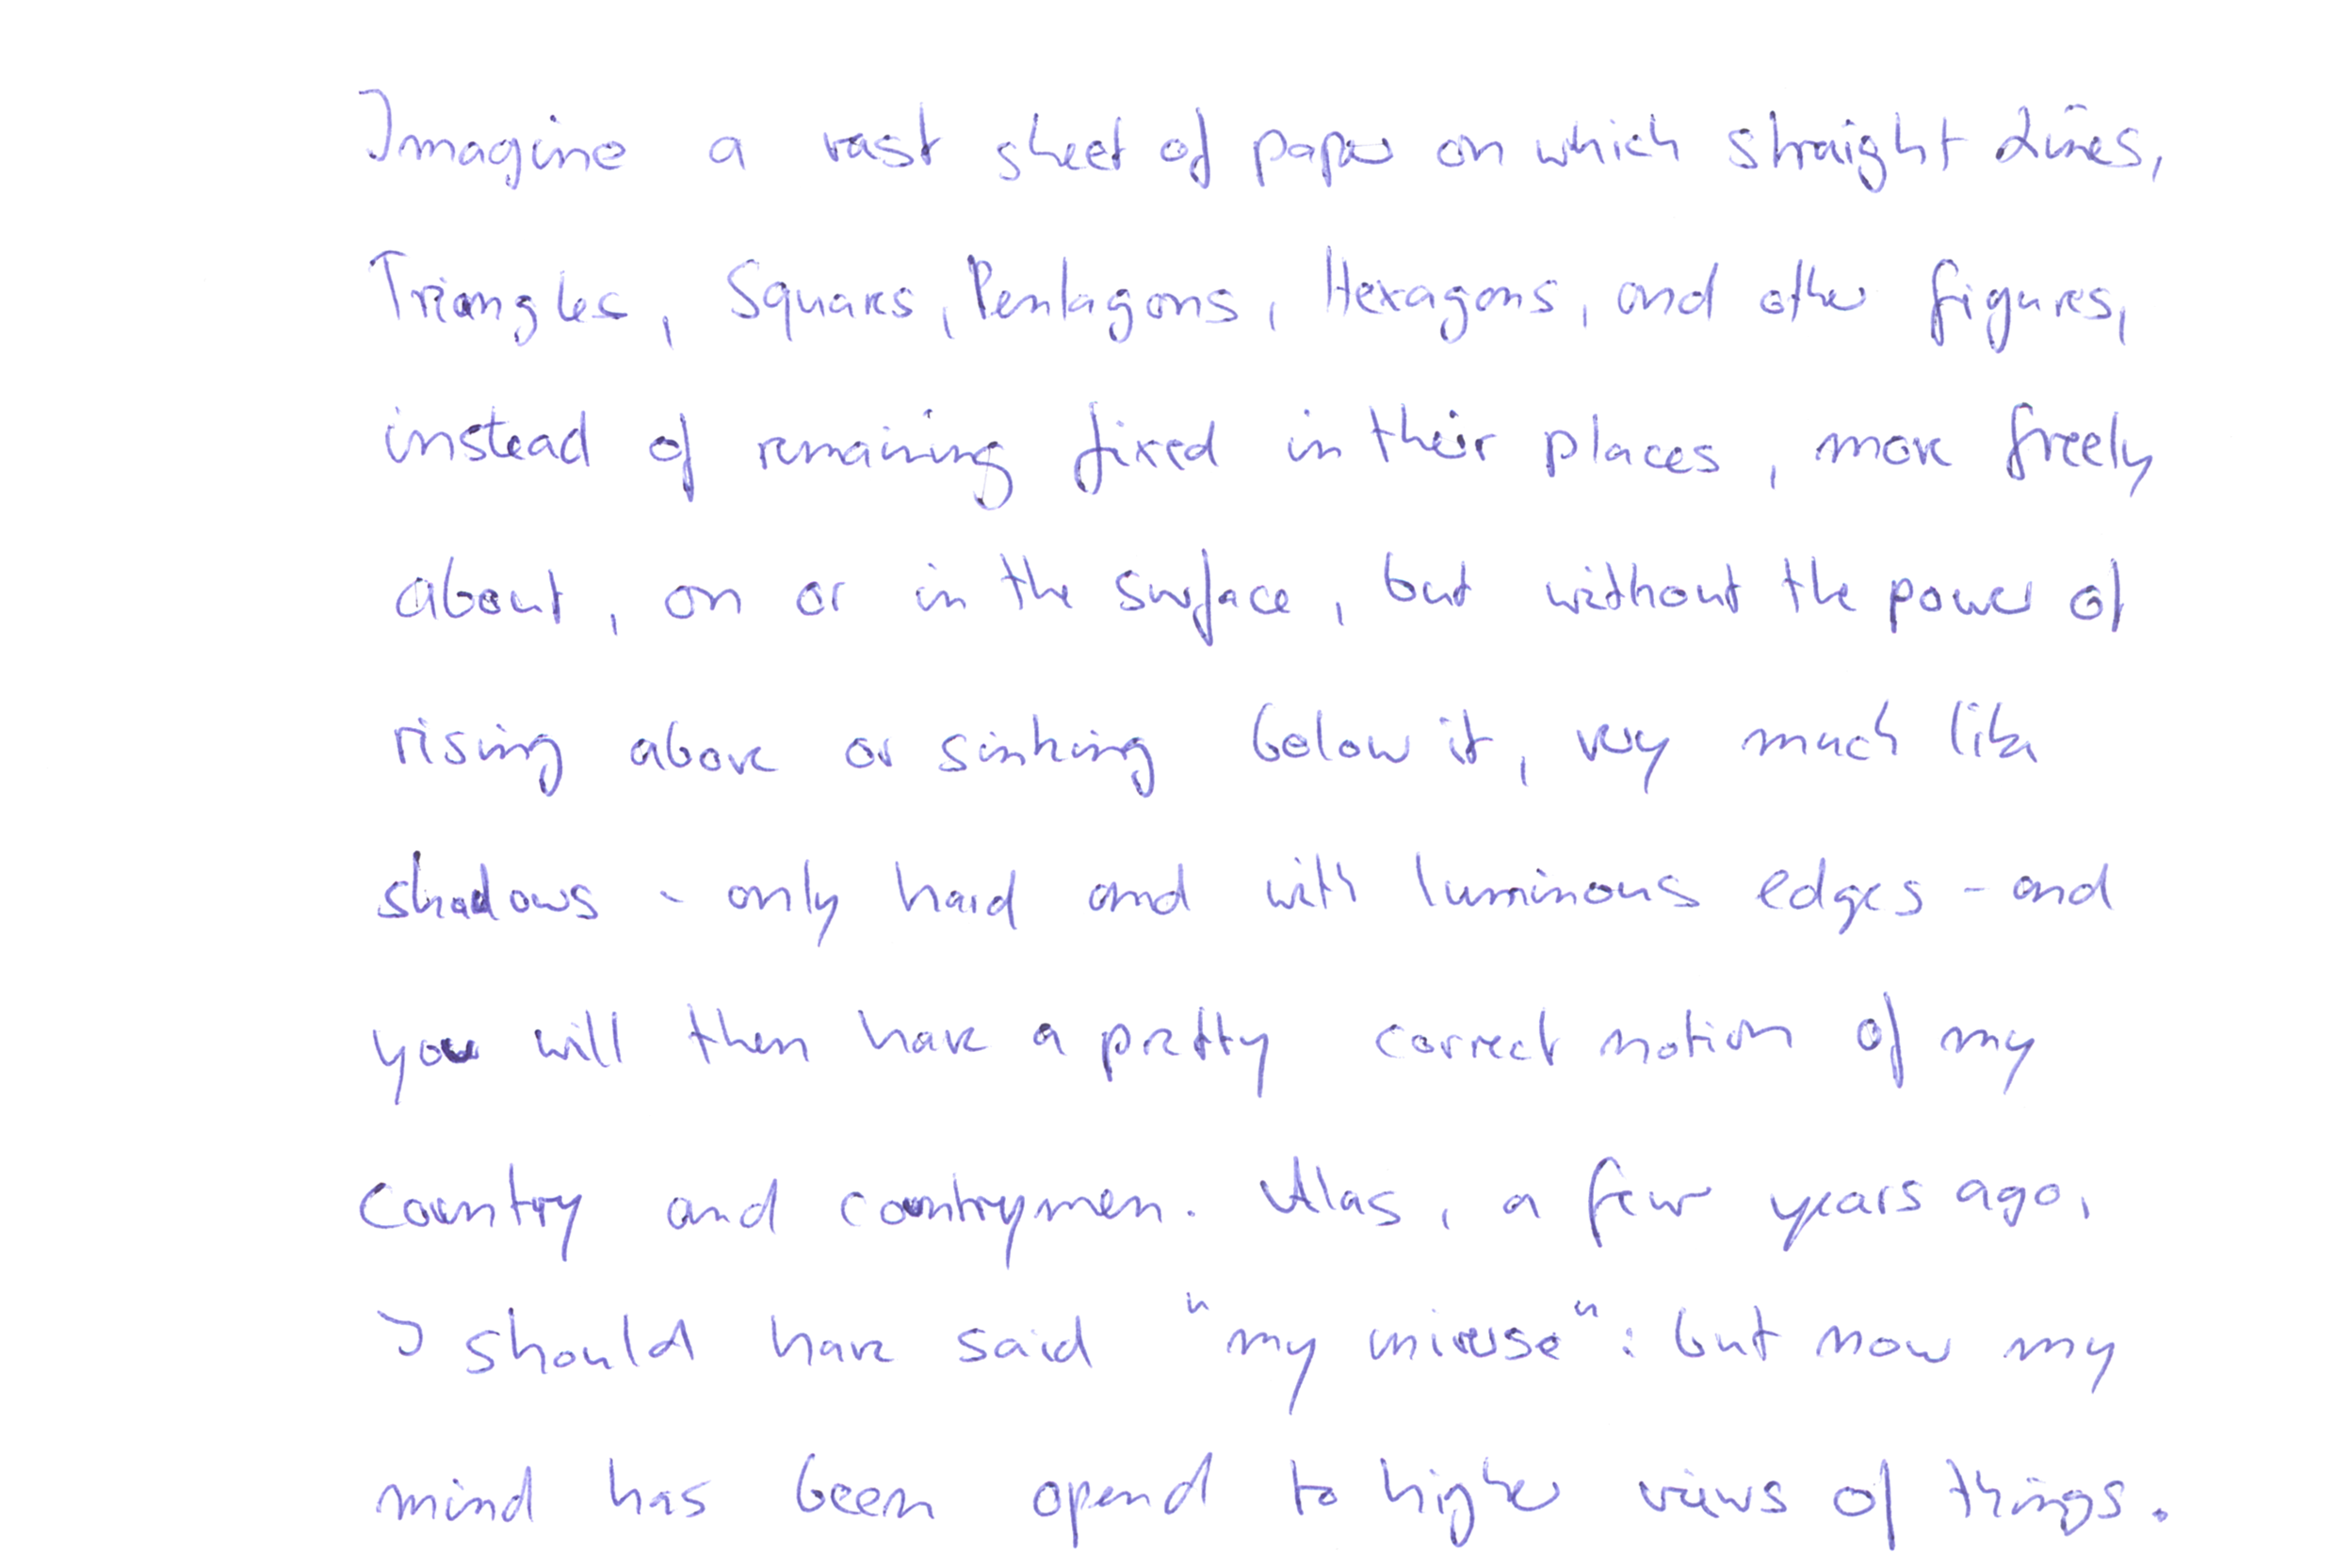 Imagine a vast sheet of paper on which straight Lines,
Triangles, Squares, Pentagons, Hexagons, and other figures,
instead of remaining fixed in their places, move freely
about, on or in the surface, but without the power of
rising above or sinking below it, very much like
shadows - only hard and with luminous edges - and
you will then have a pretty correct notion of my
country and countrymen. Alas, a few years ago,
I should have said "my universe": but now my
mind has been opend to higher views of things.